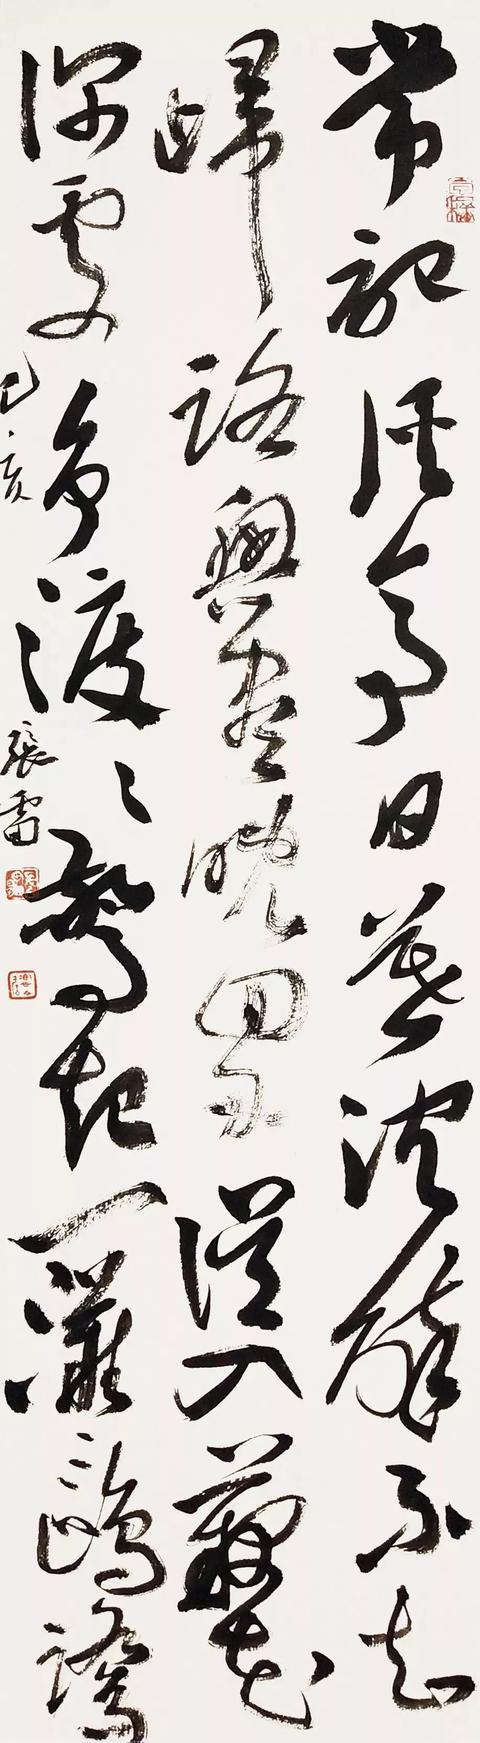 常記溪亭日暮沈醉不知
歸路興盡晚回舟誤入藕花
深處爭渡〻驚起一灘鷗鷺
己亥
張雷